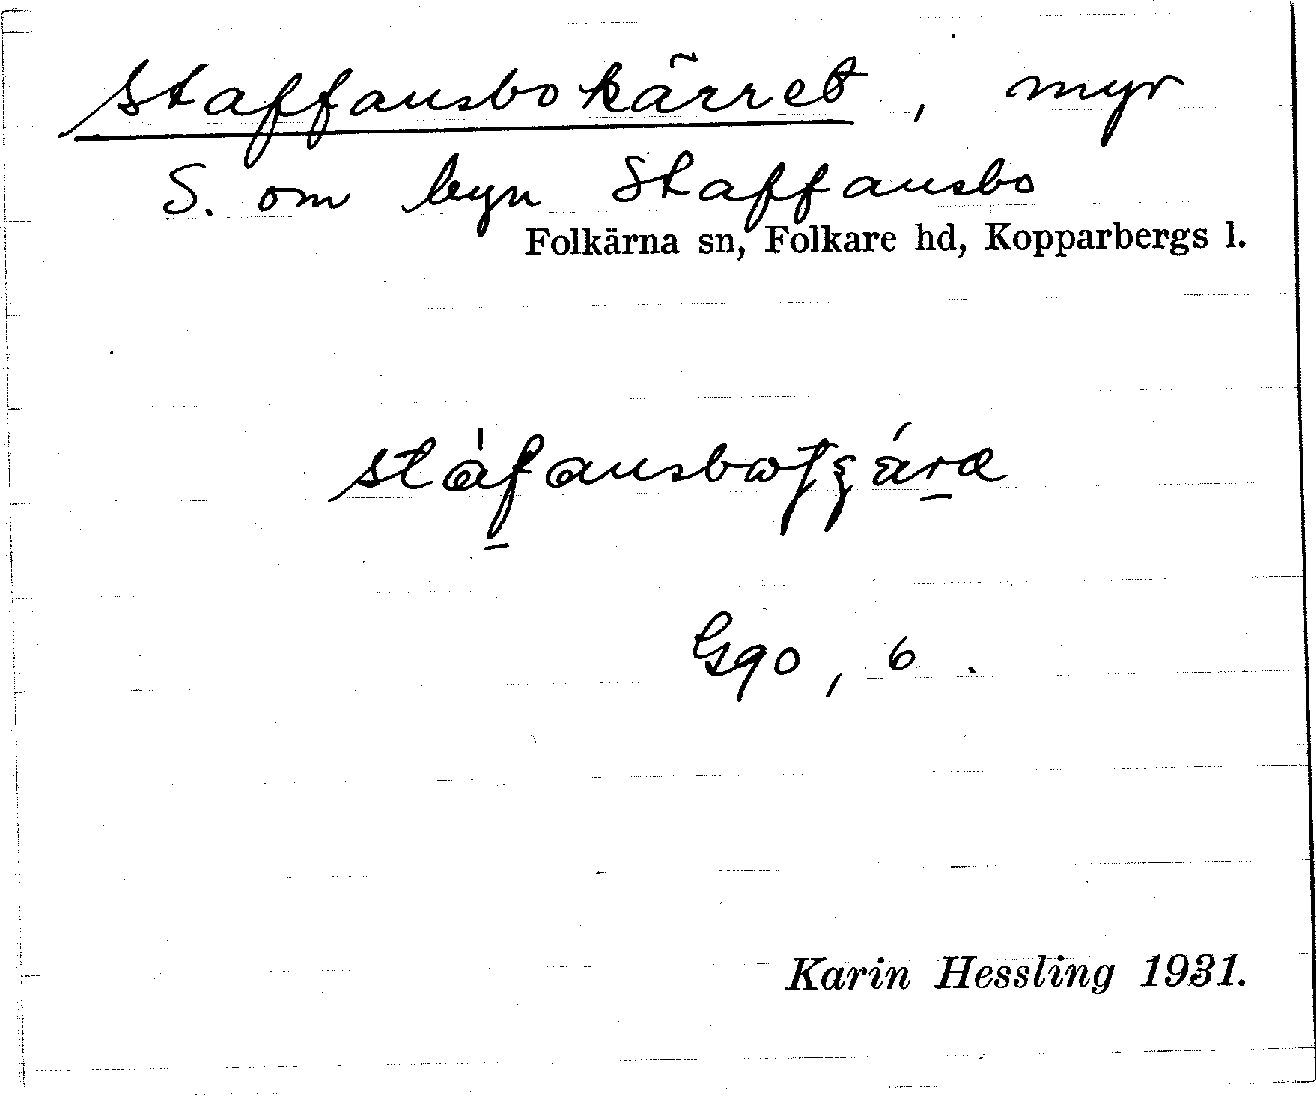 Staffansbokärret, myr
S. om byn Staffansbo
Folkärna sn, Folkare hd, Kopparbergs l.
Gqo, 6.
Karin Hessling 1931.